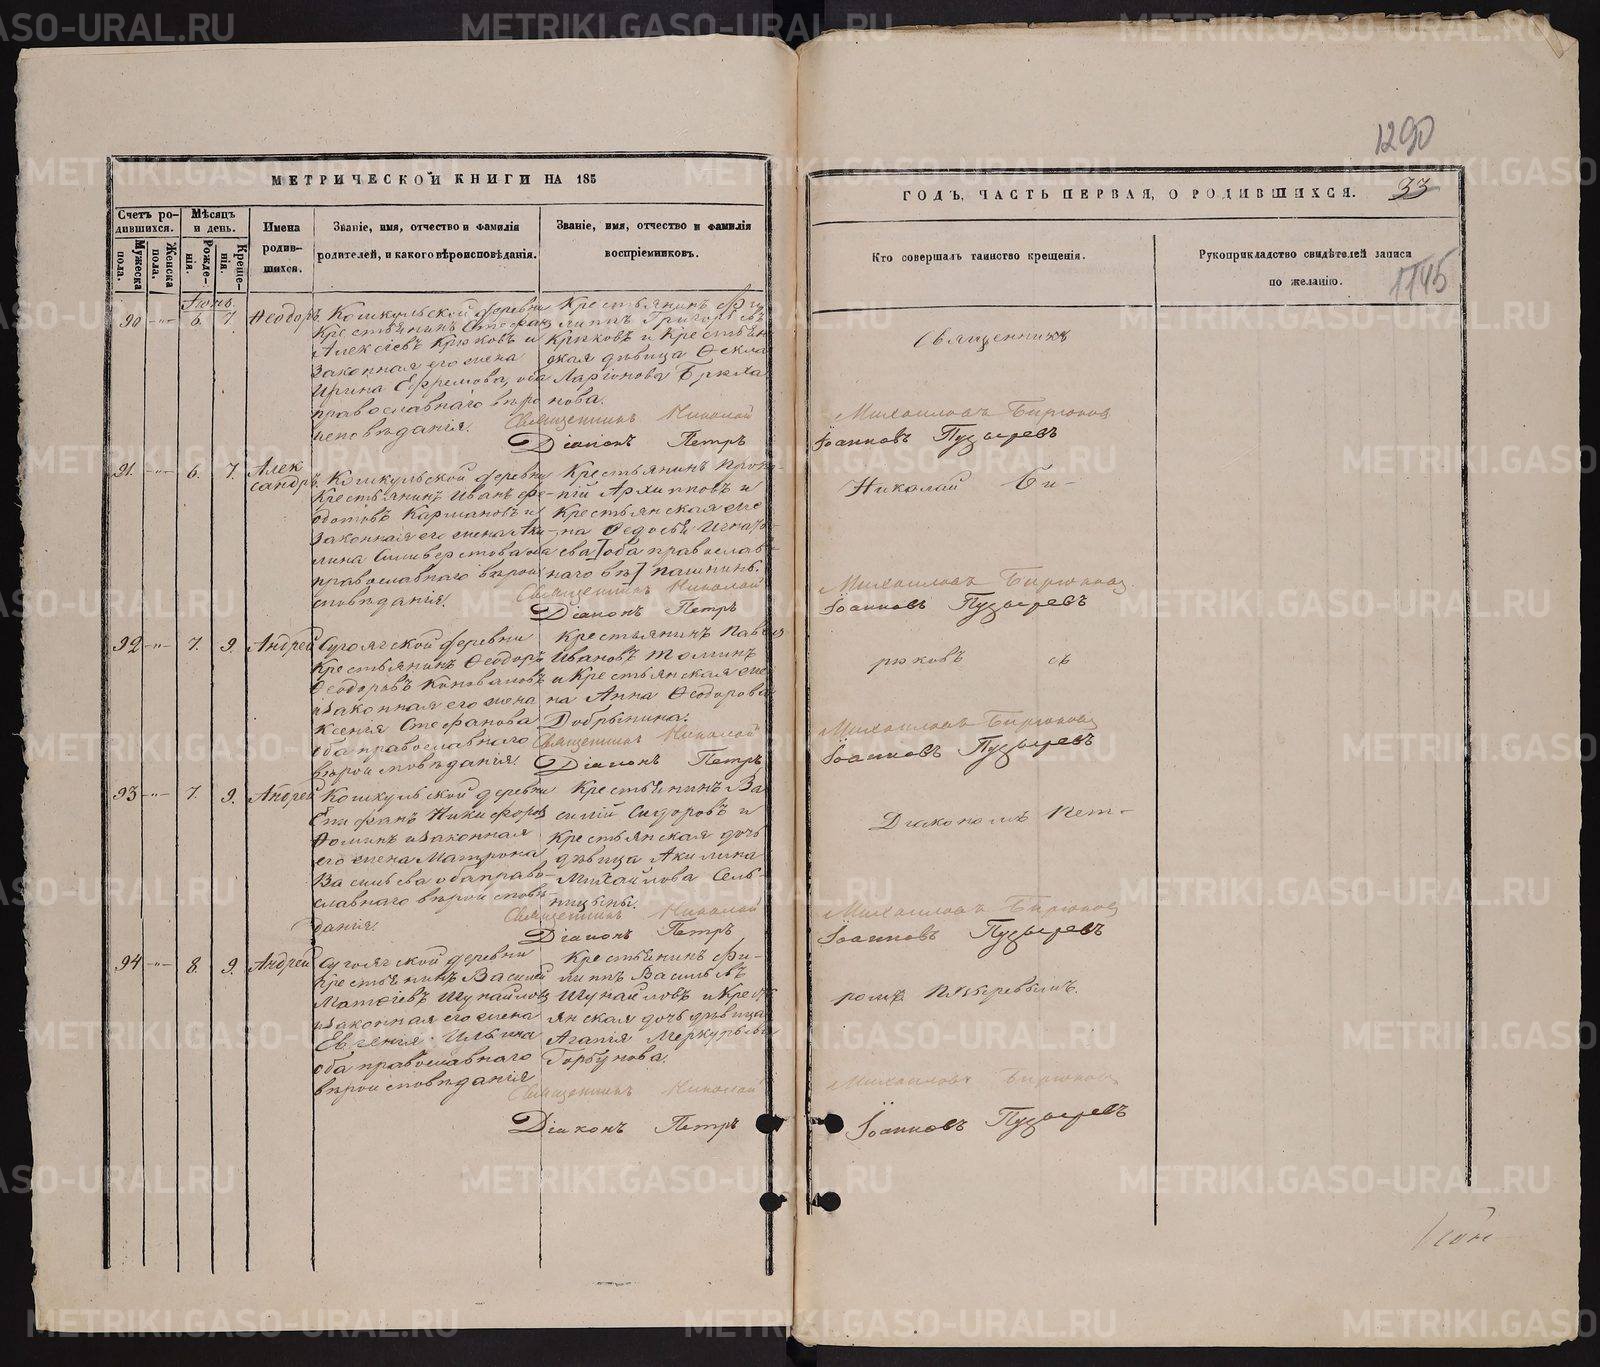 1290
МЕТРИЧЕСКОЙ КНИГИ НА 185
ГОДЪ, ЧАСТЬ ПЕРВАЯ, О РОДИВШИХСЯ.
33
Счетъ родившихся.
Мужеска пола.
Женска пола.
Мѣсяцъ и день.
Рожденія.
Крещенія.
Имена родившихся.
Званіе, имя, отчество и фамилія
родителей, и какого вѣроисповѣданія.
Званіе, имя, отчество и фамилія
воспріемниковъ.
Кто совершалъ таинство крещенія.
Рукоприкладство свидѣтелей записа
по желанію.
1145
Іюнь.
90 -"- 6. 7. Ѳеодоръ
Кошкульской деревни
Крестьянинъ Стефанъ
Алексіевъ Крюковъ и
законная его жена
Ирина Ефремова, оба
православнаго вѣро
исповѣданія.
Крестьянинъ Фи
липпъ Григорьевъ
Крюковъ и Крестьян
ская дѣвица Ѳекла
Ларіонова
нова.
Священникъ
Священникъ Николай Михаиловъ Бирюковъ
Діаконъ Петръ Іоанновъ Пузыревъ
91. -"- 6. 7. Алек
сандръ
Кошкульской деревни
Крестьянинъ Иванъ Ѳе-
дотовъ Кармановъ и
законная его жена Аки-
лина Сильверстова оба
православнаго вѣрои
сповѣданія.
Крестьянинъ Проко-
пій Архипповъ и
Крестьянская же
на Ѳедосья Игнать
ева оба православ-
наго вѣ Пашнинъ.
Николай Би-
Священникъ Николай Михаиловъ Бирюковъ
Діаконъ Петръ Іоанновъ Пузыревъ
92 -"- 7. 9. Андрей
Сугоякской деревни
Крестьянинъ Ѳеодоръ
Ѳеодоровъ Коноваловъ
и законная его жена
Ксенія Стефанова
оба православнаго
вѣроисповѣданія.
Крестьянинъ Павелъ
Ивановъ Томинъ
и Крестьянская же
на Анна Ѳеодорова
Добрынина.
рюковъ съ
Священникъ Николай Михаиловъ Бирюковъ
Діаконъ Петръ Іоанновъ Пузыревъ
93 -"- 7. 9. Андрей
Кошкульской деревни
Епифанъ Никифоровъ
Ѳоминъ и законная
его жена Матрона
Васильева оба право-
славнаго вѣроисповѣ-
данія.
Крестьянинъ Ва
силій Сидоровъ и
Крестьянская дочь
дѣвица Акилина
Михайлова Сель-
ницыны.
Діакономъ Пет-
Священникъ Николай Михаиловъ Бирюковъ
Діаконъ Петръ Іоанновъ Пузыревъ
94 -"- 8. 9. Андрей
Сугоякской деревни
Крестьянинъ Василій
Матѳіевъ Шунайловъ
и законная его жена
Евгенія Ильина
оба православнаго
вѣроисповѣданія
Крестьянинъ Фи-
липпъ Васильевъ
Шунайловъ и Кресть
янская дочь дѣвица
Агапія Меркурьева
Горбунова.
ромъ Пузыревымъ.
Священникъ Николай Михаиловъ Бирюковъ
Діаконъ Петръ Іоанновъ Пузыревъ
METRIKI.GASO-URAL.RU